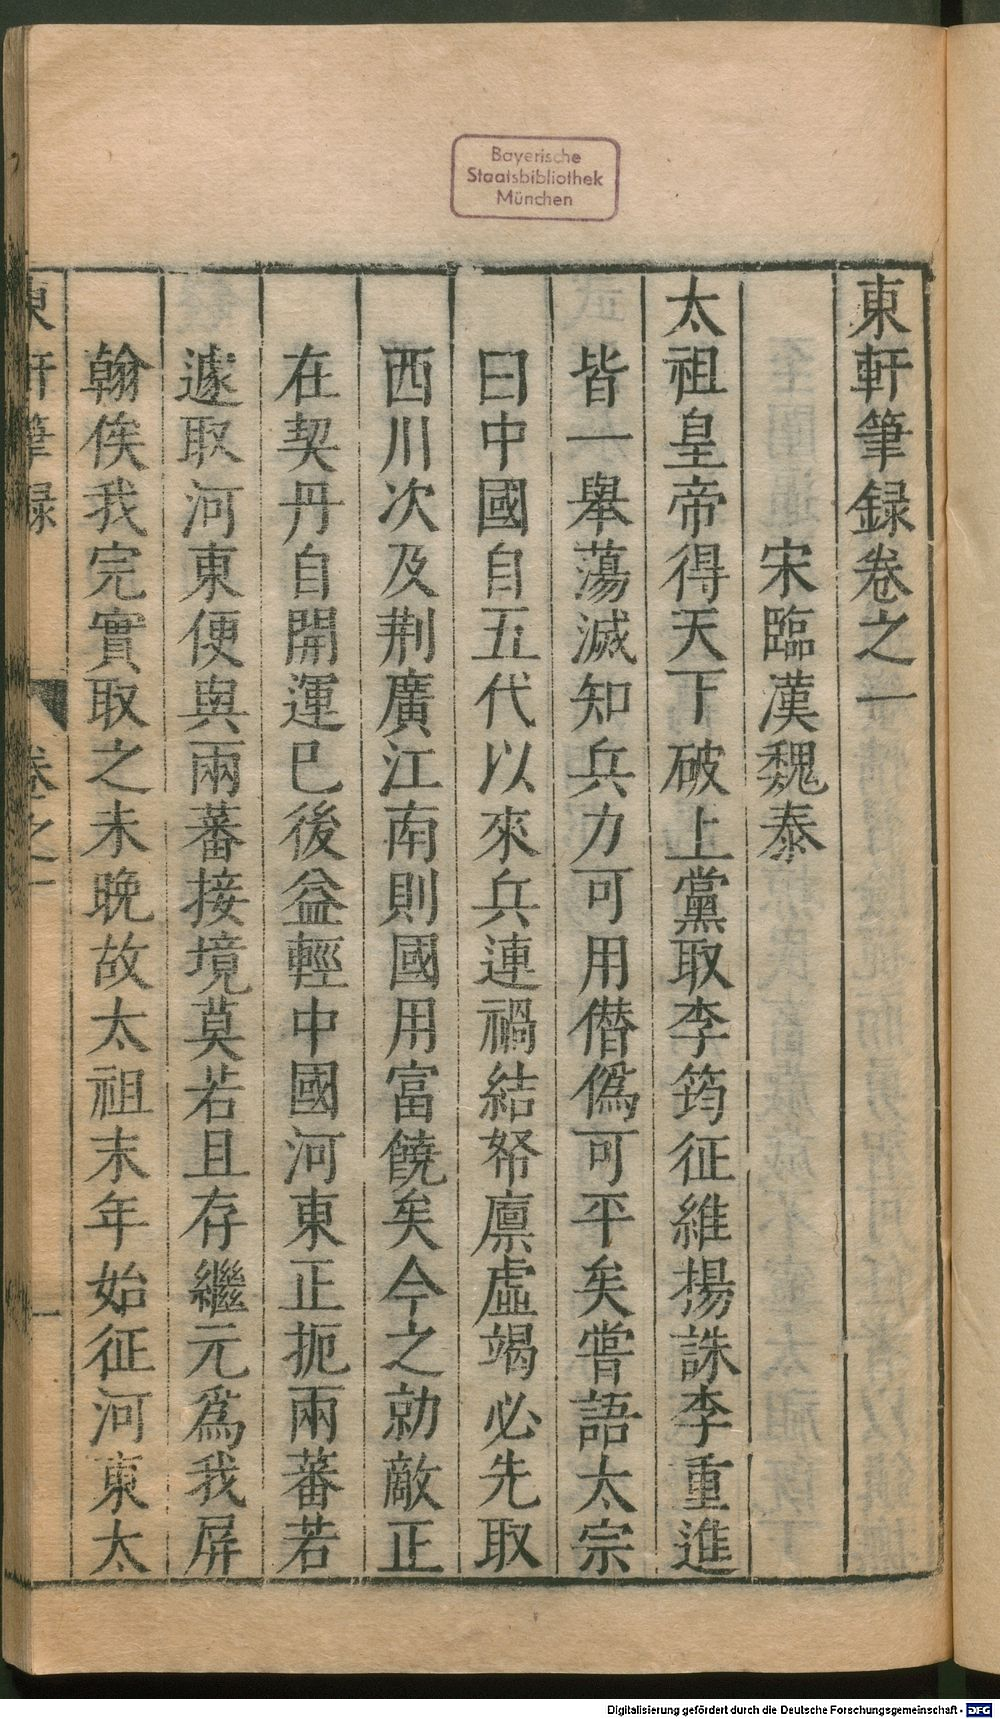 Bayerische
Staatsbibliothek
München
東軒筆録卷之一
宋臨漢魏泰
太祖皇帝得天下破上黨取李筠征維揚誅李重進
皆一舉蕩滅知兵力可用僭偽可平矣嘗語太宗
曰中國自五代以來兵連禍結帑廪虛竭必先取
西川次及荆廣江南則國用富饒矣今之勍敵正
在契丹自開運已後益輕中國河東正扼兩蕃若
遽取河東便與兩蕃接境莫若且存繼元爲我屏
翰俟我完實取之未晚故太祖末年始征河東太
東軒筆録
卷之一
一
Digitalisierung gefördert durch die Deutsche Forschungsgemeinschaft - DFG